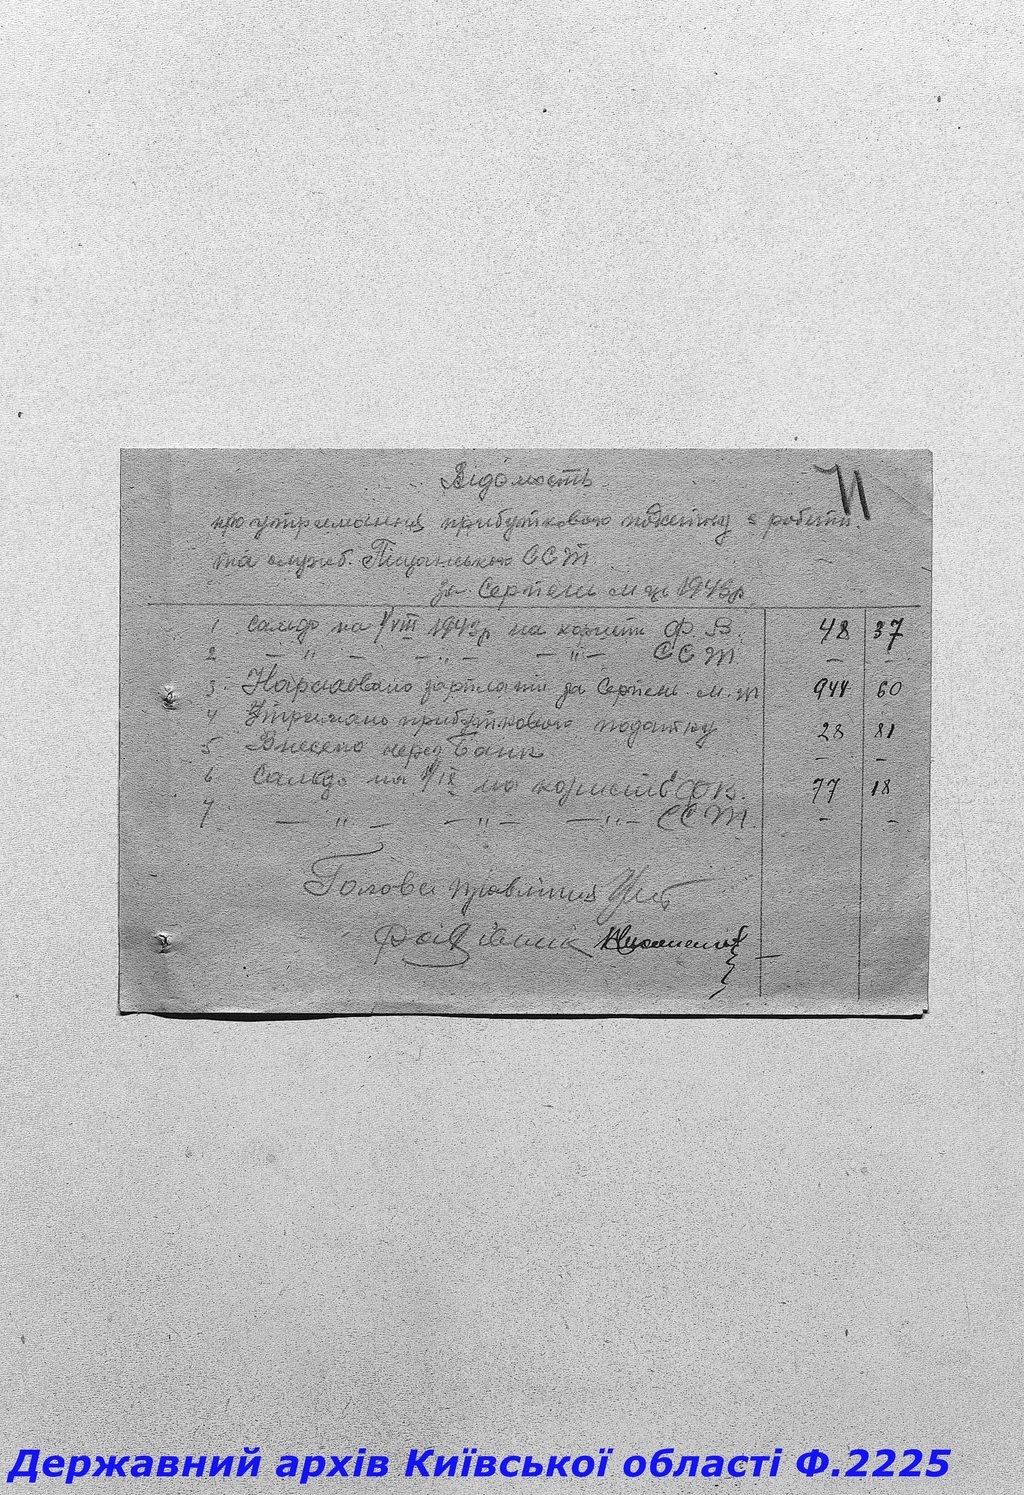 Відомость
про утримання прибуткового податку з робітн.
та служб. Піщанського ССТ
за Серпень м-ць 1943р
1 Сальдо на 1/VIII 1943р на користь Ф. В. 48 37
2 — " — — " — — " — ССТ — —
3. Нараховано зарплатні за Серпень м-ць 944 60
4 Утримано прибуткового податку 28 81
5 Внесено через Банк — —
6 Сальдо на 1/IX на користь Ф В. 77 18
7 — " — — " — — " — ССТ. — —
Голова правління
Рахівник
Державний архів Київської області Ф.2225